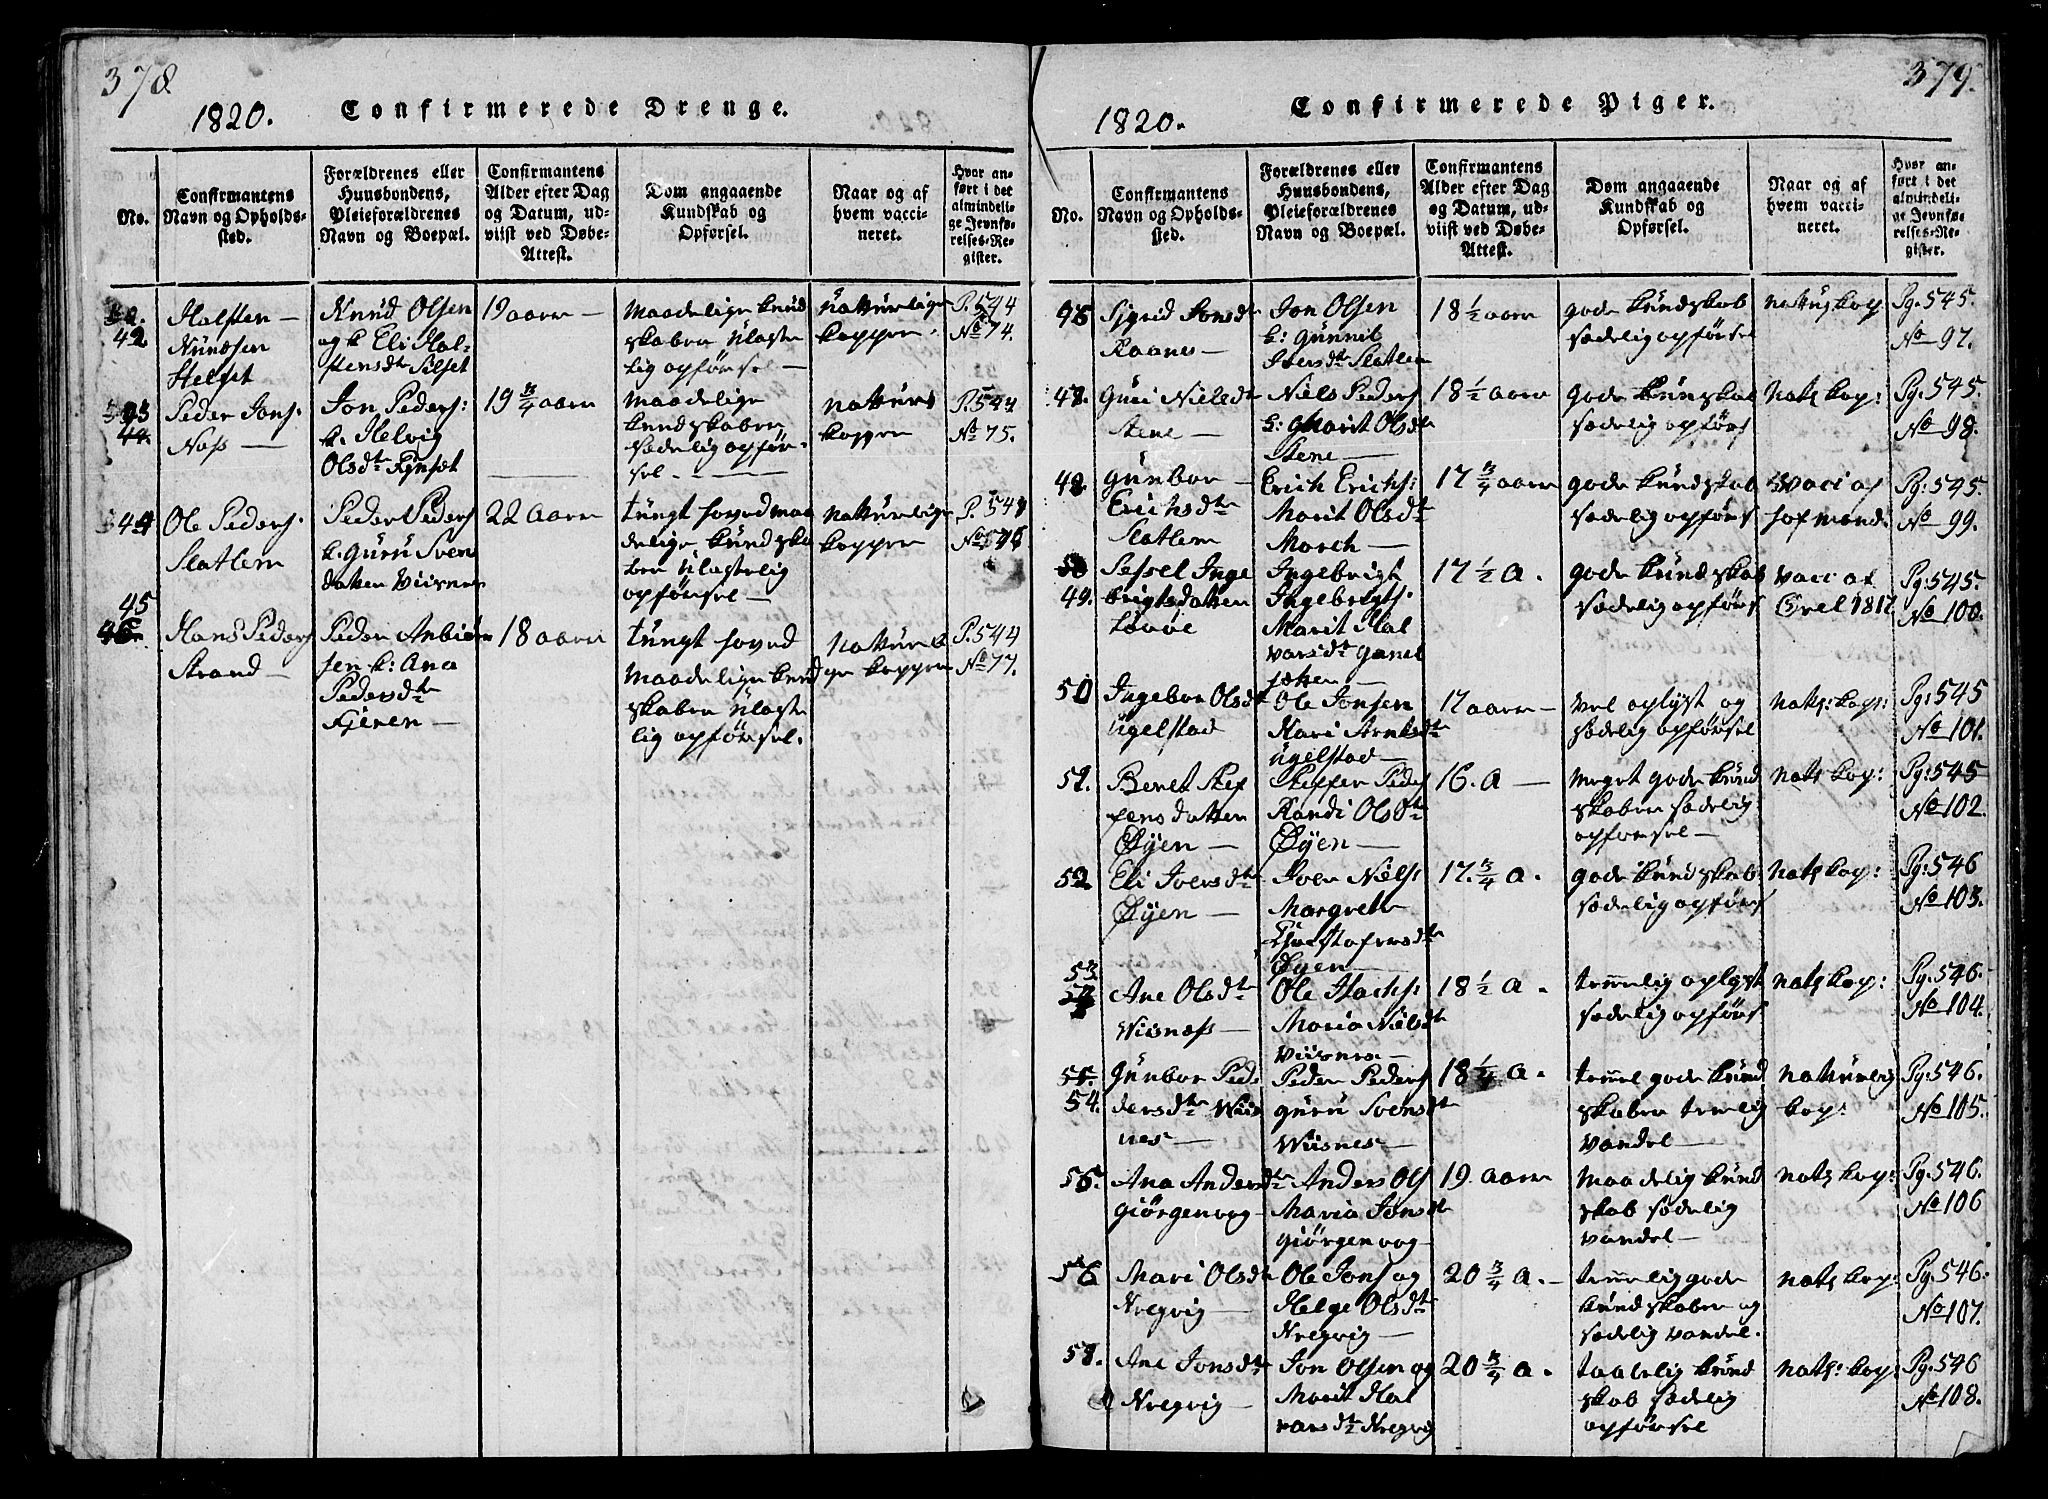 378.
1820. Confirmerede Drenge.
No.
Confirmantens Navn og Opholdssted.
Forældrenes eller Huusbondens, Pleieforældrenes Navn og Boepæl.
Confirmantens Alder efter Dag og Datum, udviist ved Døbe-Attest.
Dom angaaende Kundskab og Opførsel.
Naar og af hvem vaccineret.
Hvor anført i det almindelige Jevnførelses-Register.
42.
Halsten
Knudsen
Helset
Knud Olsen
og k Eli Hal-
stensdtr Silset
19 aarn
maadelige kund
skaber Ulaste
lig opførsel
naturlige
kopper
P. 544
No 74.
Peder Jons:
Nass
Jon Peders:
k. Helvig
Olsdtr
19 3/4 aarn
maadelige
kundskaber
sædelig opfør-
sel
naturs
kopper
P. 544
No 75.
44
Ole Peders.
Slatlem
Peder Peders
k. Guru Sven
datter Viisnes
22 aarn
tungt hoved maa
delige kundska
ber Ulastelig
opførsel
naturlige
kopper
P. 544
No 76
45
Hans Peders
Strand
Peder Anbiørn
sen k: Ana
Pedersdtr
18 aarn
tungt hoved
maadelige kund
skaber Ulaste
lig opførsel.
naturli
ge kopper
P. 544
No 77.
379.
1820. Confirmerede Piger.
No.
Confirmantens Navn og Opholdssted.
Forældrenes eller Huusbondens, Pleieforældrenes Navn og Boepæl.
Confirmantens Alder efter Dag og Datum, udviist ved Døbe-Attest.
Dom angaaende Kundskab og Opførsel.
Naar og af hvem vaccineret.
Hvor anført i det almindelige Jevnførelses-Register.
Sigrid Jonsdtr
Raanes
Jon Olsen
k: Gunnil
Iversdtr Slatlem
18 1/2 aarn
gode kundskab
sædelig opførsel
Pg. 545.
No 97.
Guri Nielsdtr
stene
Niels Peders
k: Marit Olsdtr
Stene
18 1/2 aarn
gode kunskab
sædelig opførs
nats kop:
Pg. 545.
No 98.
Gunbor
Erichsdtr
Slatlem
Erich Erichs:
Marit Olsdtr
Morch
17 3/4 aarn
gode kundskab
sædelig opførs
vaci af
hofmand.
Pg: 545.
No 99.
49.
Sessel Inge
brigtsdatter
Ingebrigt
Ingebrigts:
Marit Hal
varsdtr
17 1/2 a.
gode kundskab
sædelig opførs
vacci af
Pg: 545.
No 100.
50
Ingebor Olsdtr
Ugelstad
Ole Jonsen
Kari
Ugelstad
17 aarn
vel oplyst og
sædelig opførsel
nats: kop:
Pg: 545
No 101.
51.
Beret Stef
fensdatter
Øyen
Steffen Peders
Randi Olsdtr
Øyen
16. a
meget gode kund
skaber sædelig
opførsel
nats kop:
Pg: 545
No 102.
52.
Eli Iversdtr
Øyen
Iver Niels:
Margrete
Christofersdtr
Øyen
17. 3/4 a.
gode kundskab
sædelig opførs
nats kop:
Pg: 546
No 103.
53.
Ane Olsdtr
Wiisnæss
Ole
Maria Nielsdtr
Viisnes
18 1/2 a.
temelig oplyst
sædelig opførs
nats kop:
Pg. 546.
No 104.
54.
Gunbor Pe
dersdtr Wiis
nes
Peder Peders
Guru Svensdtr
Wiisnes
18 1/4 a.
temel gode kund
skaber temelig
vandel
naturlig
kop:
Pg: 546.
No 105.
55.
Ana Andersdtr
Giørgenvog
Anders Ols
Maria Jonsdtr
Giørgenvog
19. aarn
maadelig kund
skab sædelig
vandel
nats kop:
Pg. 546.
No 106
56
Mari Olsdtr
Kregvig
Ole Jons og
Helge Olsdtr
Kregvig
20 3/4 a.
temelig gode
kundskaber og
sædelig vandel.
nats kop:
Pg. 546.
No 107.
Ane Jonsdtr
Kregvig
Jon Olsen og
Marit Hal
varsdtr Kregvig
20 3/4 a.
taalelig kund
skab sædelig
opførsel
nats: kop:
Pg: 546
No 108.